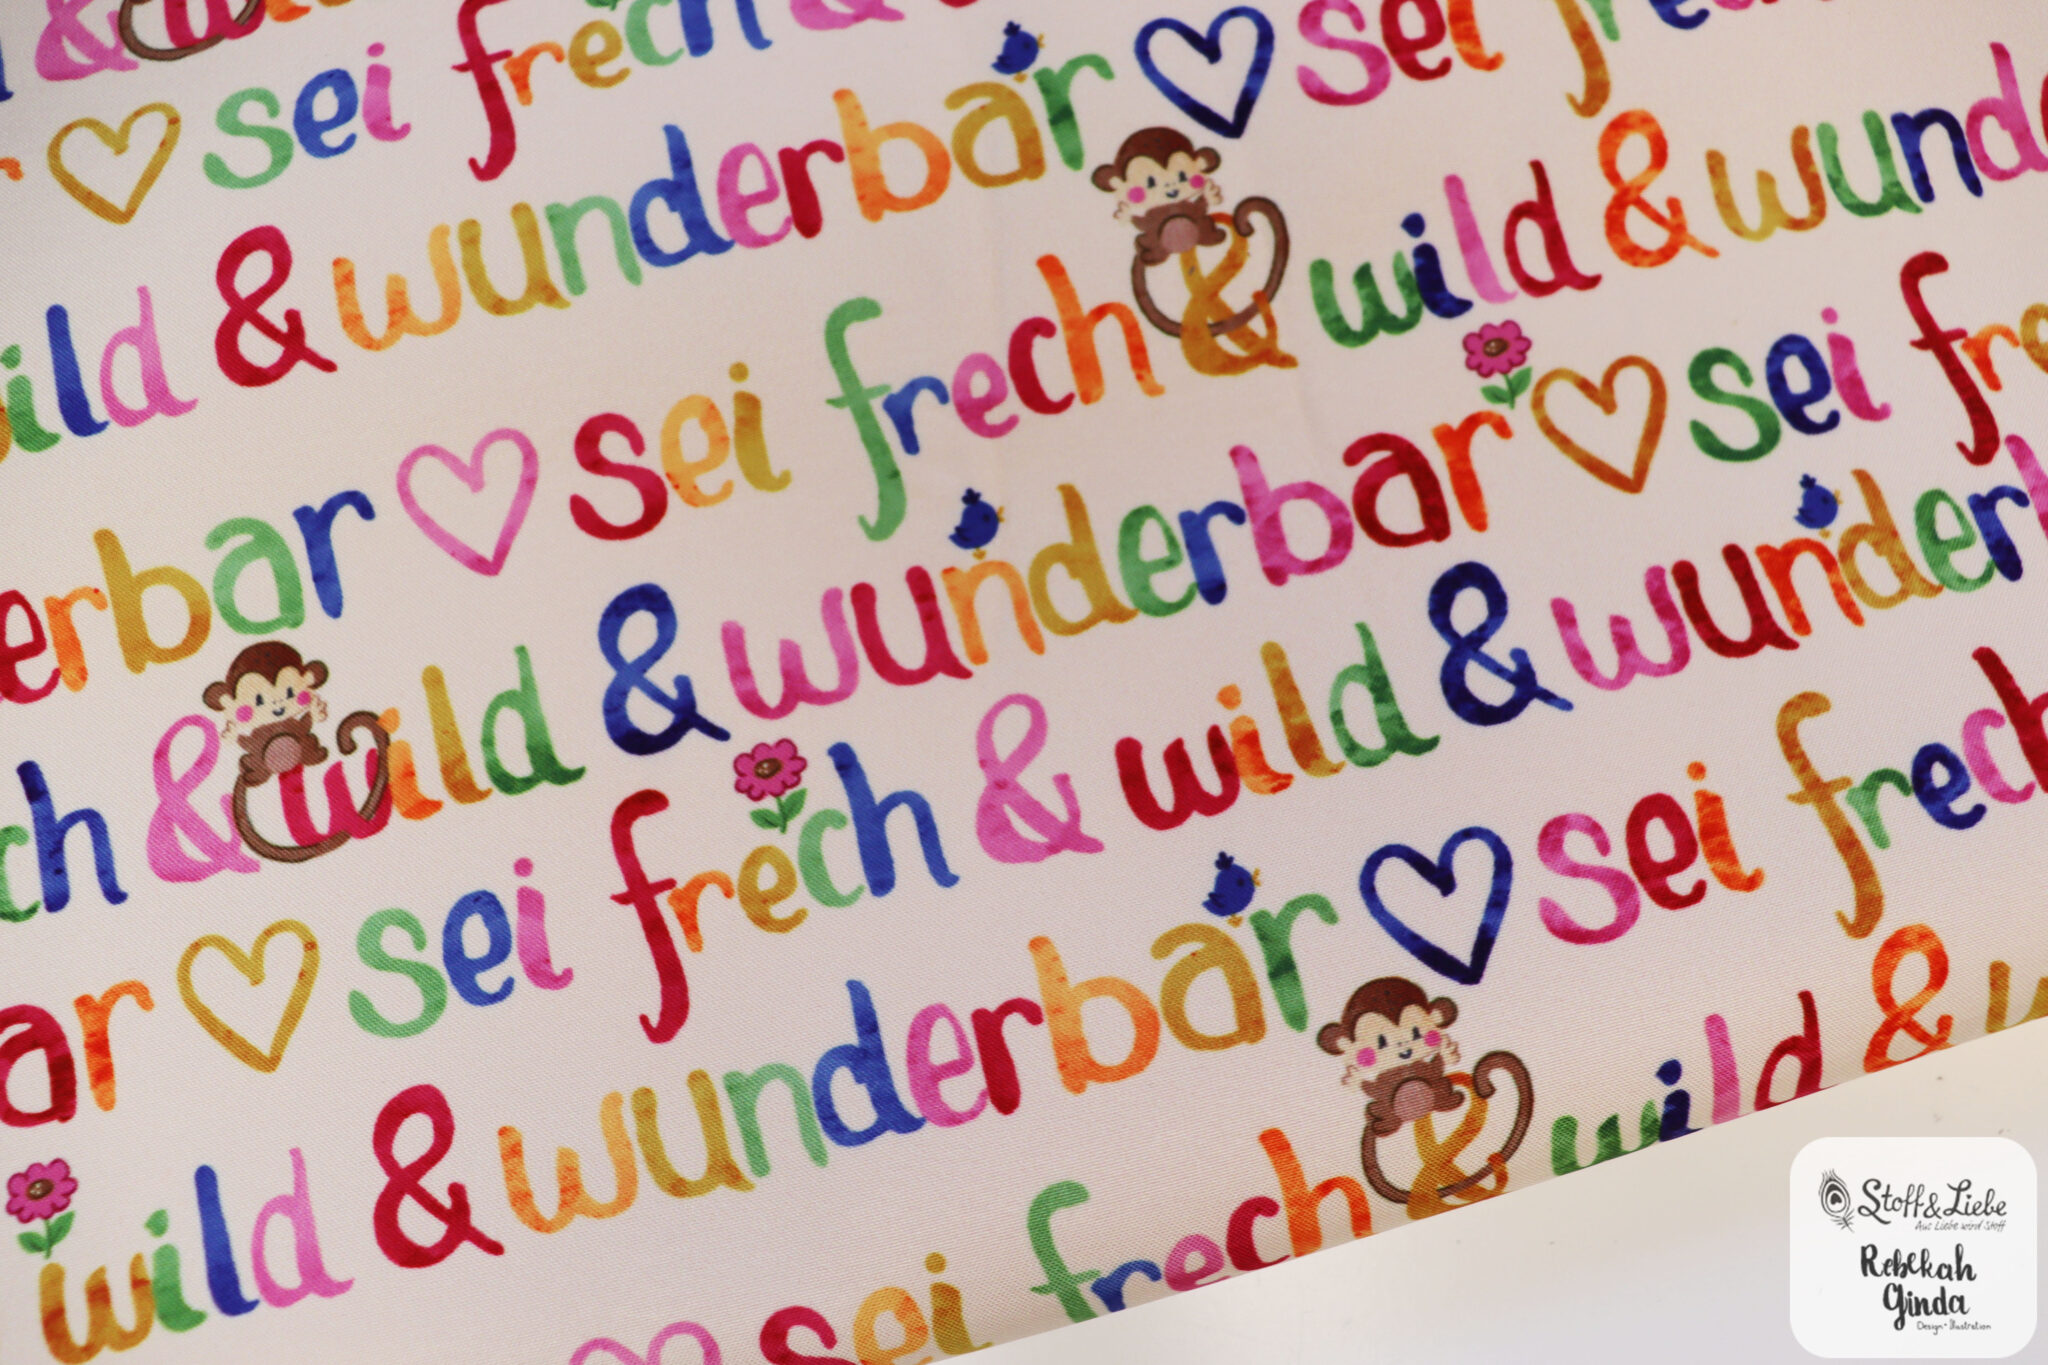 & wi
sei frech &
♡ sei frech
& wunderbar ♡ sei
wild & wunderbar ♡ sei fre
sei frech & wild & wund
erbar ♡ sei frech & wild & wunderbar ♡ sei fre
ch & wild & wunderbar
ar ♡ sei frech & wild & wunder
wild & wunderbar ♡ sei frech
sei frech & wild &
Stoff&Liebe
Aus Liebe wird Stoff
Rebekah
Ginda
Design • Illustration